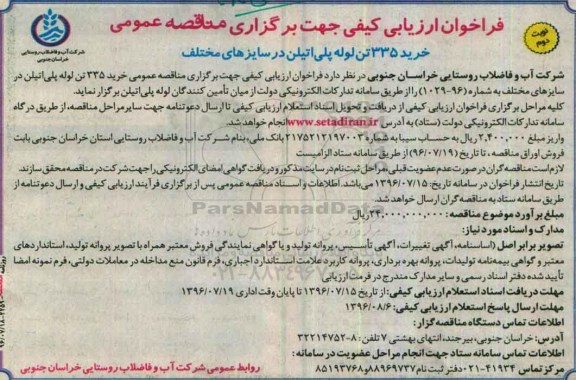 نوبت دوم
فراخوان ارزیابی کیفی جهت برگزاری مناقصه عمومی
خرید ۳۳۵ تن لوله پلی اتیلن در سایزهای مختلف
شرکت آب و فاضلاب روستایی
خراسان جنوبی
شرکت آب و فاضلاب روستایی خراسان جنوبی در نظر دارد فراخوان ارزیابی کیفی جهت برگزاری مناقصه عمومی خرید ۳۳۵ تن لوله پلی اتیلن در
سایزهای مختلف به شماره (۹۶-۱۰۲۹) را از طریق سامانه تدارکات الکترونیکی دولت از میان تأمین کنندگان لوله پلی اتیلن برگزار نماید.
کلیه مراحل برگزاری فراخوان ارزیابی کیفی از دریافت و تحویل اسناد استعلام ارزیابی کیفی تا ارسال دعوتنامه جهت سایر مراحل مناقصه، از طریق درگاه
سامانه تدارکات الکترونیکی دولت (ستاد) به آدرس www.setadiran.ir انجام خواهد شد.
واریز مبلغ ۲,۴۰۰,۰۰۰ ریال به حساب سیبا به شماره ۲۱۷۵۲۱۲۱۹۷۰۰۳ بانک ملی، بنام شرکت آب و فاضلاب روستایی استان خراسان جنوبی بابت
فروش اوراق مناقصه، تا تاریخ (۹۶/۰۷/۱۹) از طریق سامانه ستاد الزامیست
لازم است مناقصه گران در صورت عدم عضویت قبلی، مراحل ثبت نام در سایت مذکور و دریافت گواهی امضای الکترونیکی را جهت شرکت در مناقصه محقق سازند.
تاریخ انتشار فراخوان در سامانه تاریخ: ۱۳۹۶/۰۷/۱۵ می باشد. اطلاعات و اسناد مناقصه عمومی پس از برگزاری فرآیند ارزیابی کیفی و ارسال دعوتنامه از
طریق سامانه ستاد به مناقصه گران ارسال خواهد شد.
مبلغ برآورد موضوع مناقصه: ۲۴,۰۰۰,۰۰۰,۰۰۰ ریال.
مدارک و اسناد مورد نیاز:
تصویر برابر اصل (اساسنامه، آگهی تغییرات، آگهی تأسیس، پروانه تولید و یا گواهی نمایندگی فروش معتبر همراه با تصویر پروانه تولید، استانداردهای
معتبر و گواهی بیمه نامه تولیدات، پروانه بهره برداری، پروانه کاربرد علامت استاندارد اجباری، فرم قانون منع مداخله در معاملات دولتی، فرم نمونه امضا
تأیید شده دفتر اسناد رسمی و سایر مدارک مندرج در فرمت ارزیابی
مهلت دریافت اسناد استعلام ارزیابی کیفی: از تاریخ ۱۳۹۶/۰۷/۱۵ تا پایان وقت اداری ۱۳۹۶/۰۷/۱۹
مهلت ارسال پاسخ استعلام ارزیابی کیفی: ۱۳۹۶/۰۸/۶
اطلاعات تماس دستگاه مناقصه گزار:
آدرس: خراسان جنوبی، بیرجند، انتهای بهشتی ۷ تلفن: ۸-۳۲۲۱۴۷۵۲
اطلاعات تماس سامانه ستاد جهت انجام مراحل عضویت در سامانه:
مرکز تماس ۴۱۹۳۴-۰۲۱ دفتر ثبت نام: ۸۸۹۶۹۷۳۷ و ۸۵۱۹۳۷۶۸
روابط عمومی شرکت آب و فاضلاب روستایی خراسان جنوبی
ParsNamadData